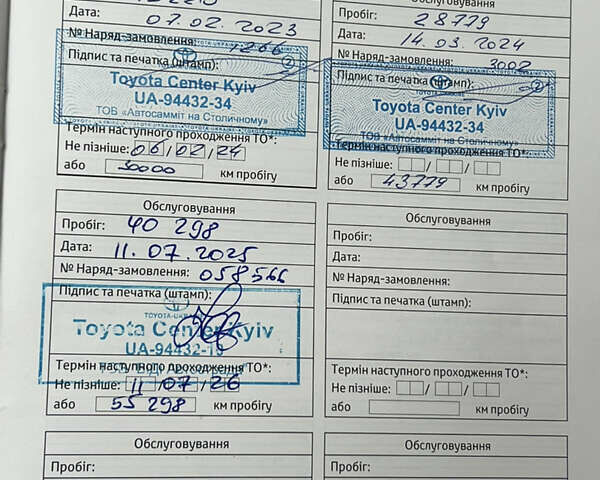 Дата: 07.02.2023
№ Наряд-замовлення: 1266
Підпис та печатка (штамп):
Toyota Center Kyiv
UA-94432-34
ТОВ «Автосамміт на Столичному»
Термін наступного проходження ТО*:
Не пізніше: 06/02/24
або 30000 км пробігу
Пробіг: 28779
Дата: 14.03.2024
№ Наряд-замовлення: 3002
Підпис та печатка (штамп):
Toyota Center Kyiv
UA-94432-34
ТОВ «Автосамміт на Столичному»
Термін наступного проходження ТО*:
Не пізніше: / /
або 43779 км пробігу
Обслуговування
Пробіг: 40 298
Дата: 11.07.2025
№ Наряд-замовлення: 058566
Підпис та печатка (штамп):
TOYOTA-UKRAINE
Toyota Center Kyiv
UA-94432-19
Термін наступного проходження ТО*:
Не пізніше: 11/07/26
або 55 298 км пробігу
Обслуговування
Пробіг:
Дата:
№ Наряд-замовлення:
Підпис та печатка (штамп):
Термін наступного проходження ТО*:
Не пізніше: / /
або км пробігу
Обслуговування
Пробіг:
Обслуговування
Пробіг: